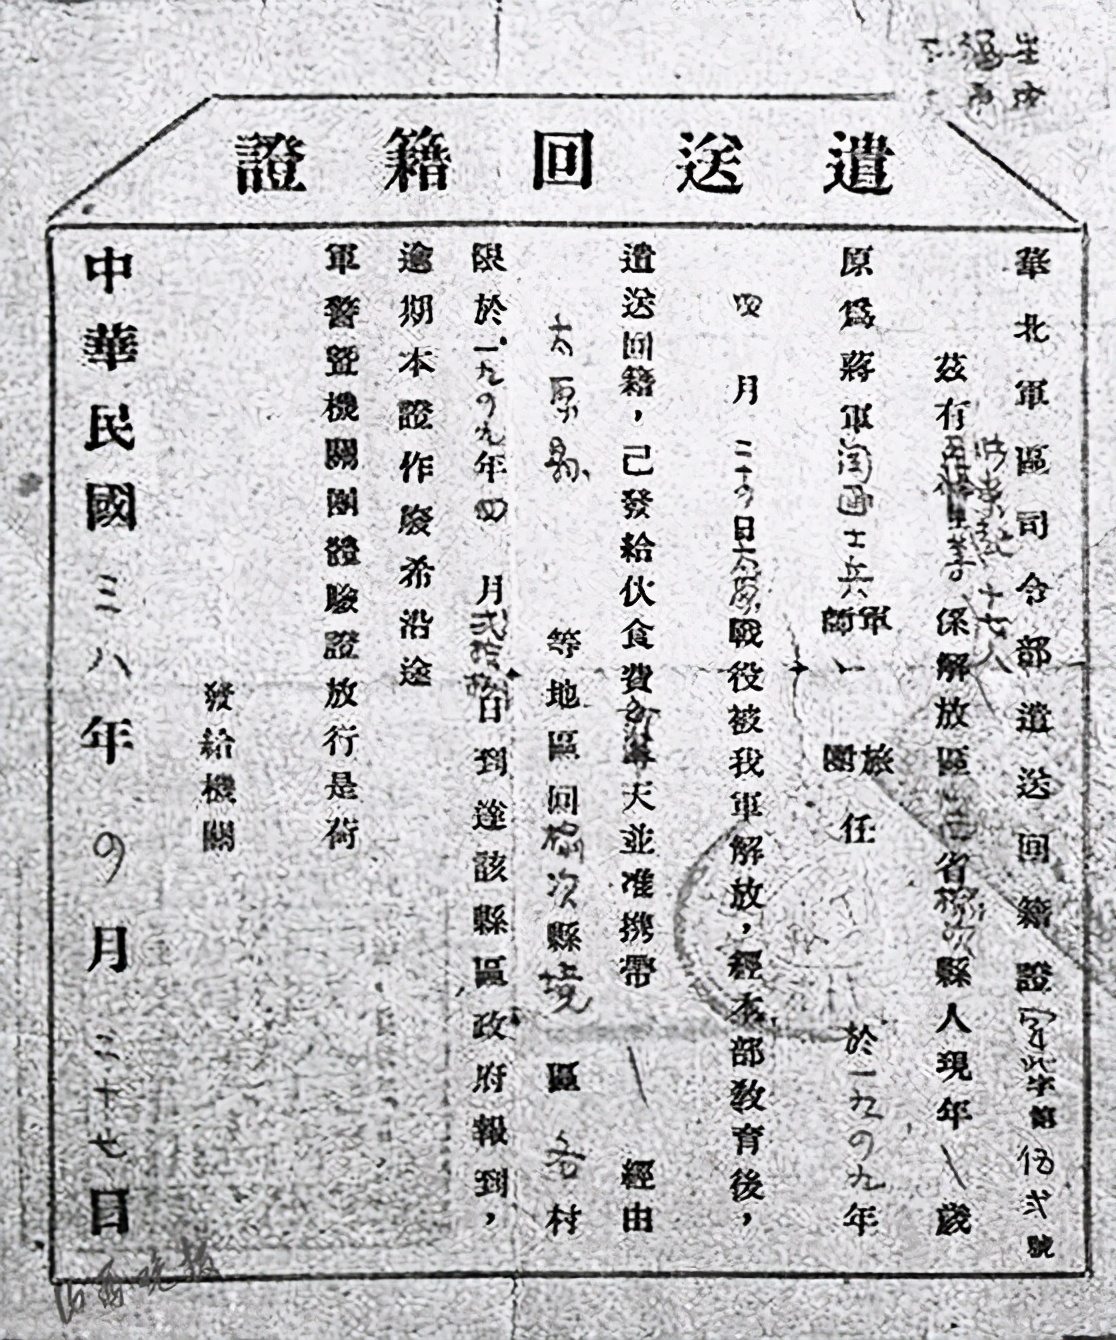 遣送回籍證
華北軍區司令部遣送回籍證字第伍弍號
茲有
十七人
係解放區山西省榆次縣人現年歲
原爲蔣軍閻匪士兵
軍 旅
師 團 任 於一九四九年
四月二十四日太原戰役被我軍解放，經本部教育後，
遣送回籍，已發給伙食費天並准携帶 經由
太原縣 等地區回榆次縣境 區 各村
限於一九四九年四月弍拾 日到達該縣區政府報到，
逾期本證作廢希沿途
軍警暨機關團體驗證放行是荷
發給機關
中華民國三八年四月二十七日
山西晚报